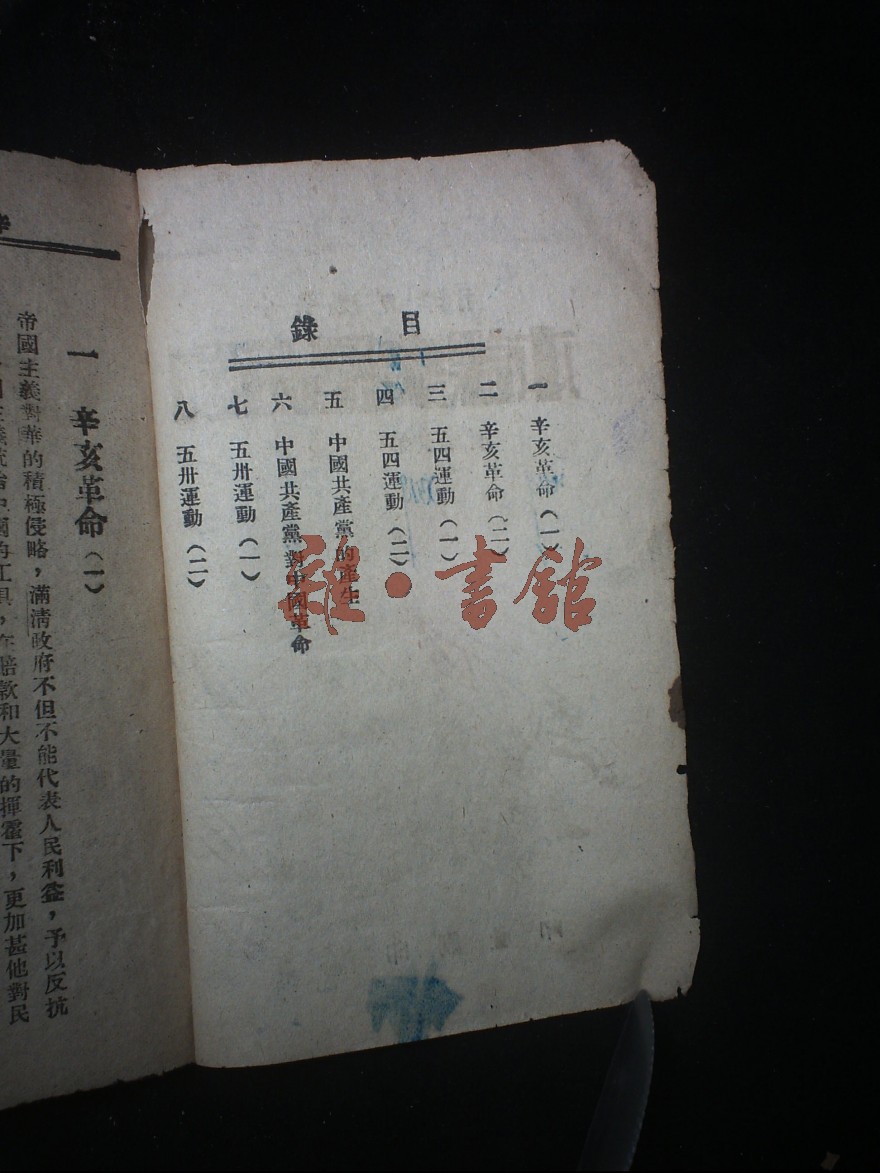 目錄
一 辛亥革命(一)
二 辛亥革命(二)
三 五四運動(一)
四 五四運動(二)
五 中國共產黨的產生
六 中國共產黨對中國革命
七 五卅運動(一)
八 五卅運動(二)
雜·書館
一 辛亥革命(一)
帝國主義對華的積極侵略,滿清政府不但不能代表人民利益,予以反抗
工具,在賠款和大量的揮霍下,更加甚他對民